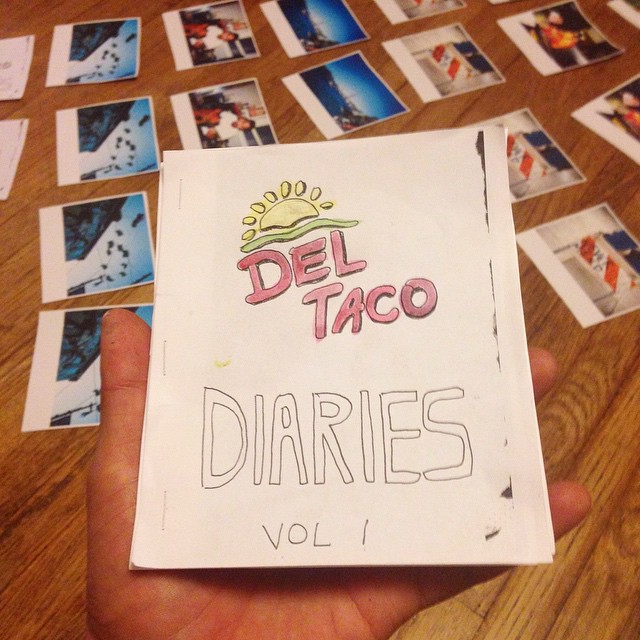 DEL
TACO
DIARIES
VOL 1